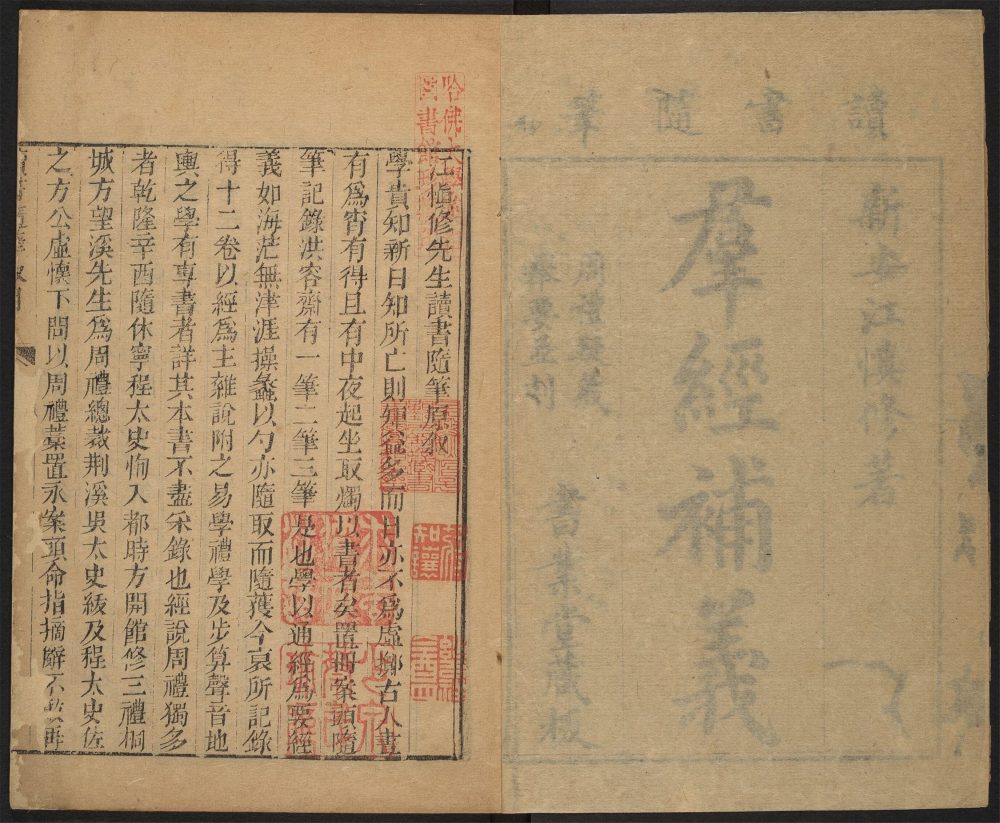 讀書隨筆
新安江慎修著
羣經補義
周禮疑義
舉要並刊
書業堂藏板
哈佛大
圖書館
江愼修先生讀書隨筆原敘
學貴知新日知所亡則知益多而日亦不爲虛擲古人晝
有爲宵有得且有中夜起坐取燭以書者矣置冊案頭隨
筆記錄洪容齋有一筆二筆三筆是也學以通經爲要經
義如海茫無津涯操蠡以勺亦隨取而隨獲今裒所記錄
得十二卷以經爲主雜說附之易學禮學及步算聲音地
輿之學有專書者詳其本書不盡采錄也經說周禮獨多
者乾隆辛酉隨休寧程太史恂入都時方開館修三禮桐
城方望溪先生爲周禮總裁荆溪吳太史紱及程太史佐
之方公虛懷下問以周禮藁置永案頭命指摘辭不獲再